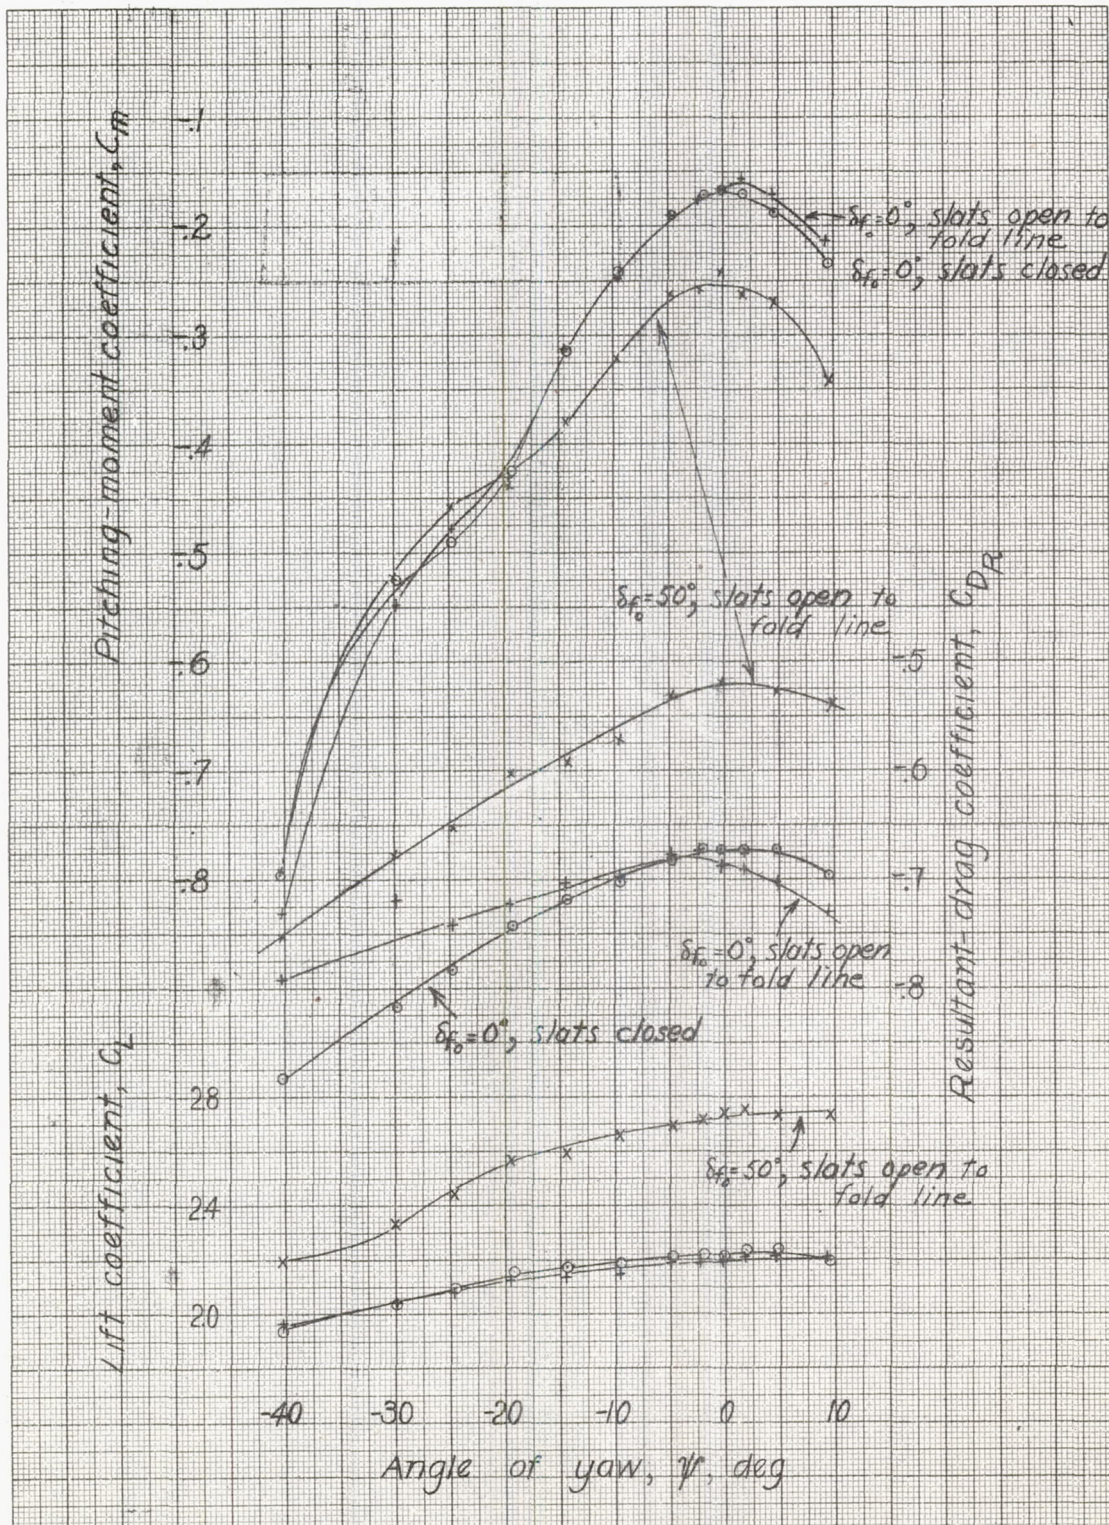 Pitching-moment coefficient, Cm
-.1
-.2
-.3
-.4
-.5
-.6
-.7
-.8
δfₒ=0°, slats open to
fold line
δfₒ=0°, slats closed
δfₒ=50°, slats open to
fold line
Resultant-drag coefficient, CDR
-.5
-.6
-.7
-.8
δfₒ=0°, slats open
to fold line
δfₒ=0°, slats closed
Lift coefficient, CL
2.8
2.4
2.0
δfₒ=50°, slats open to
fold line
-40 -30 -20 -10 0 10
Angle of yaw, ψ, deg